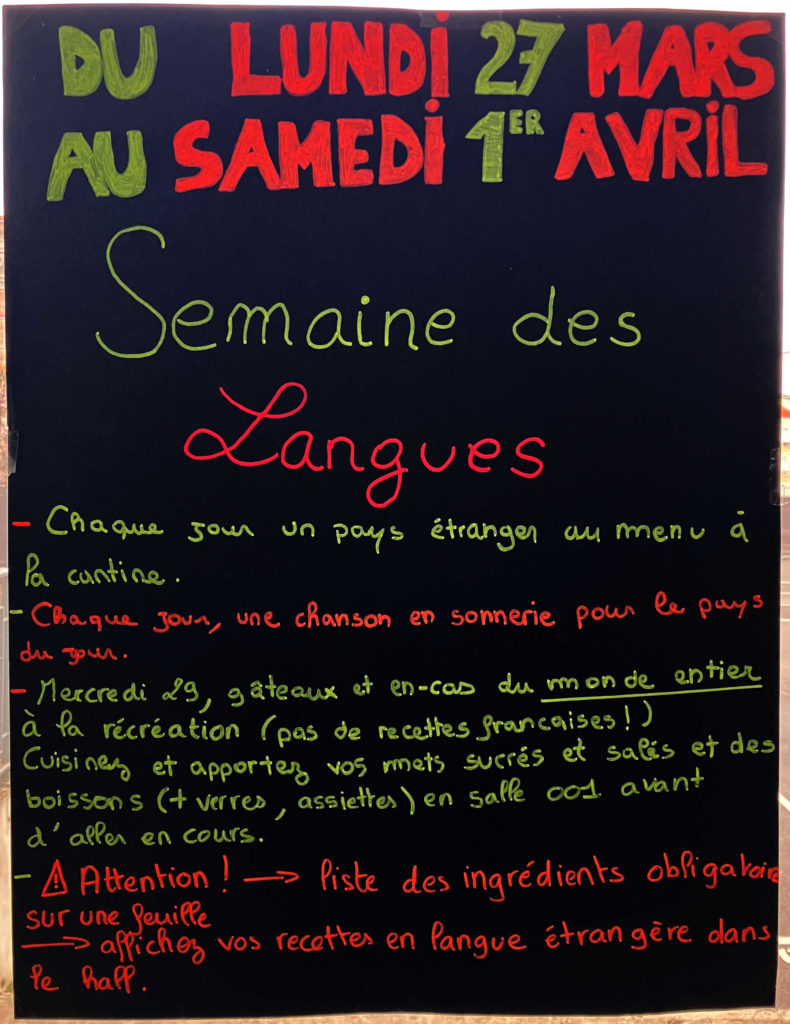 DU LUNDI 27 MARS
AU SAMEDI 1ER AVRIL
Semaine des
Langues
- Chaque jour un pays étranger au menu à
la cantine.
- Chaque jour, une chanson en sonnerie pour le pays
du jour.
- Mercredi 29, gâteaux et en-cas du monde entier
à la récréation (pas de recettes francaises !)
Cuisinez et apportez vos mets sucrés et salés et des
boissons (+ verres, assiettes) en salle 001 avant
d'aller en cours.
- ⚠ Attention ! → liste des ingrédients obligatoire
sur une feuille
→ affichez vos recettes en langue étrangère dans
le hall.